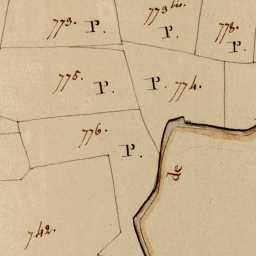 773. P.
773 bis. P.
778. P.
775. P.
P. 774.
776. P.
de
742.